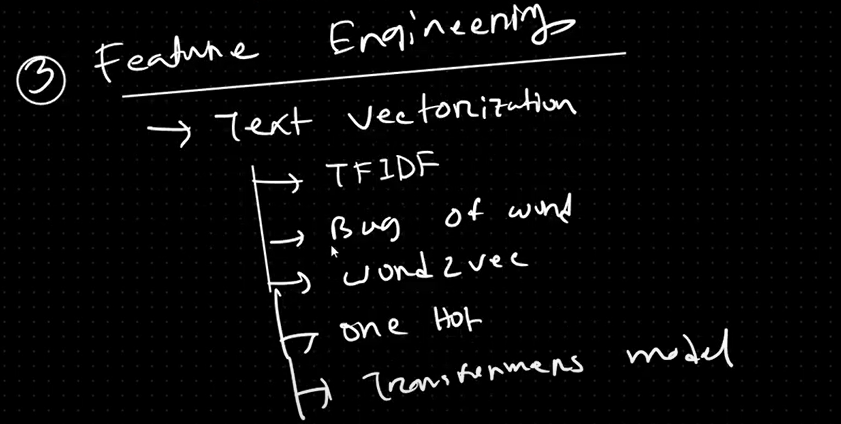 ③ Feature Engineering
→ Text Vectorization
→ TFIDF
→ Bag of word
→ word2vec
→ one Hot
→ Transformers model